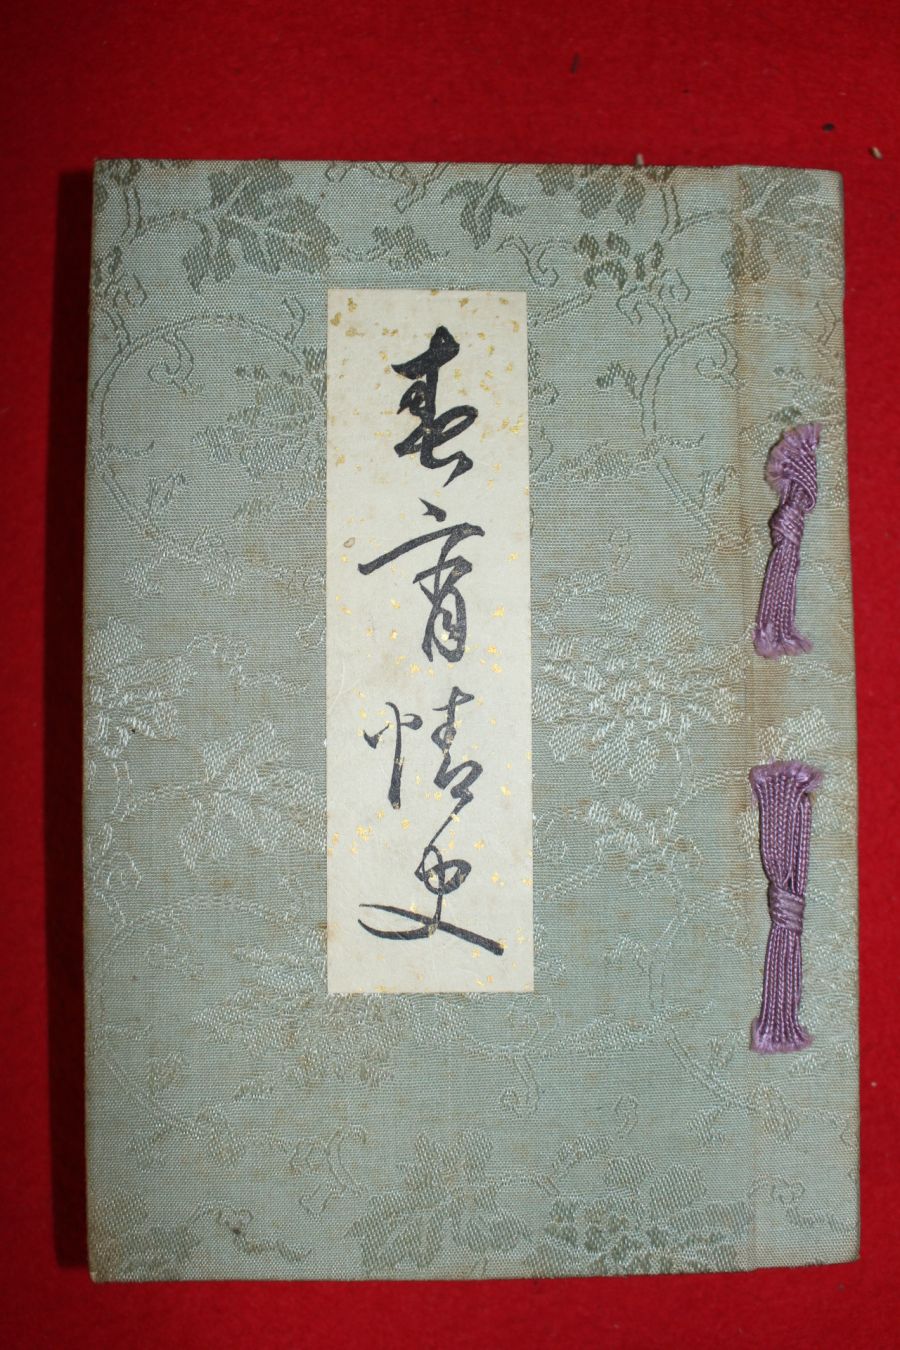 春宵情史